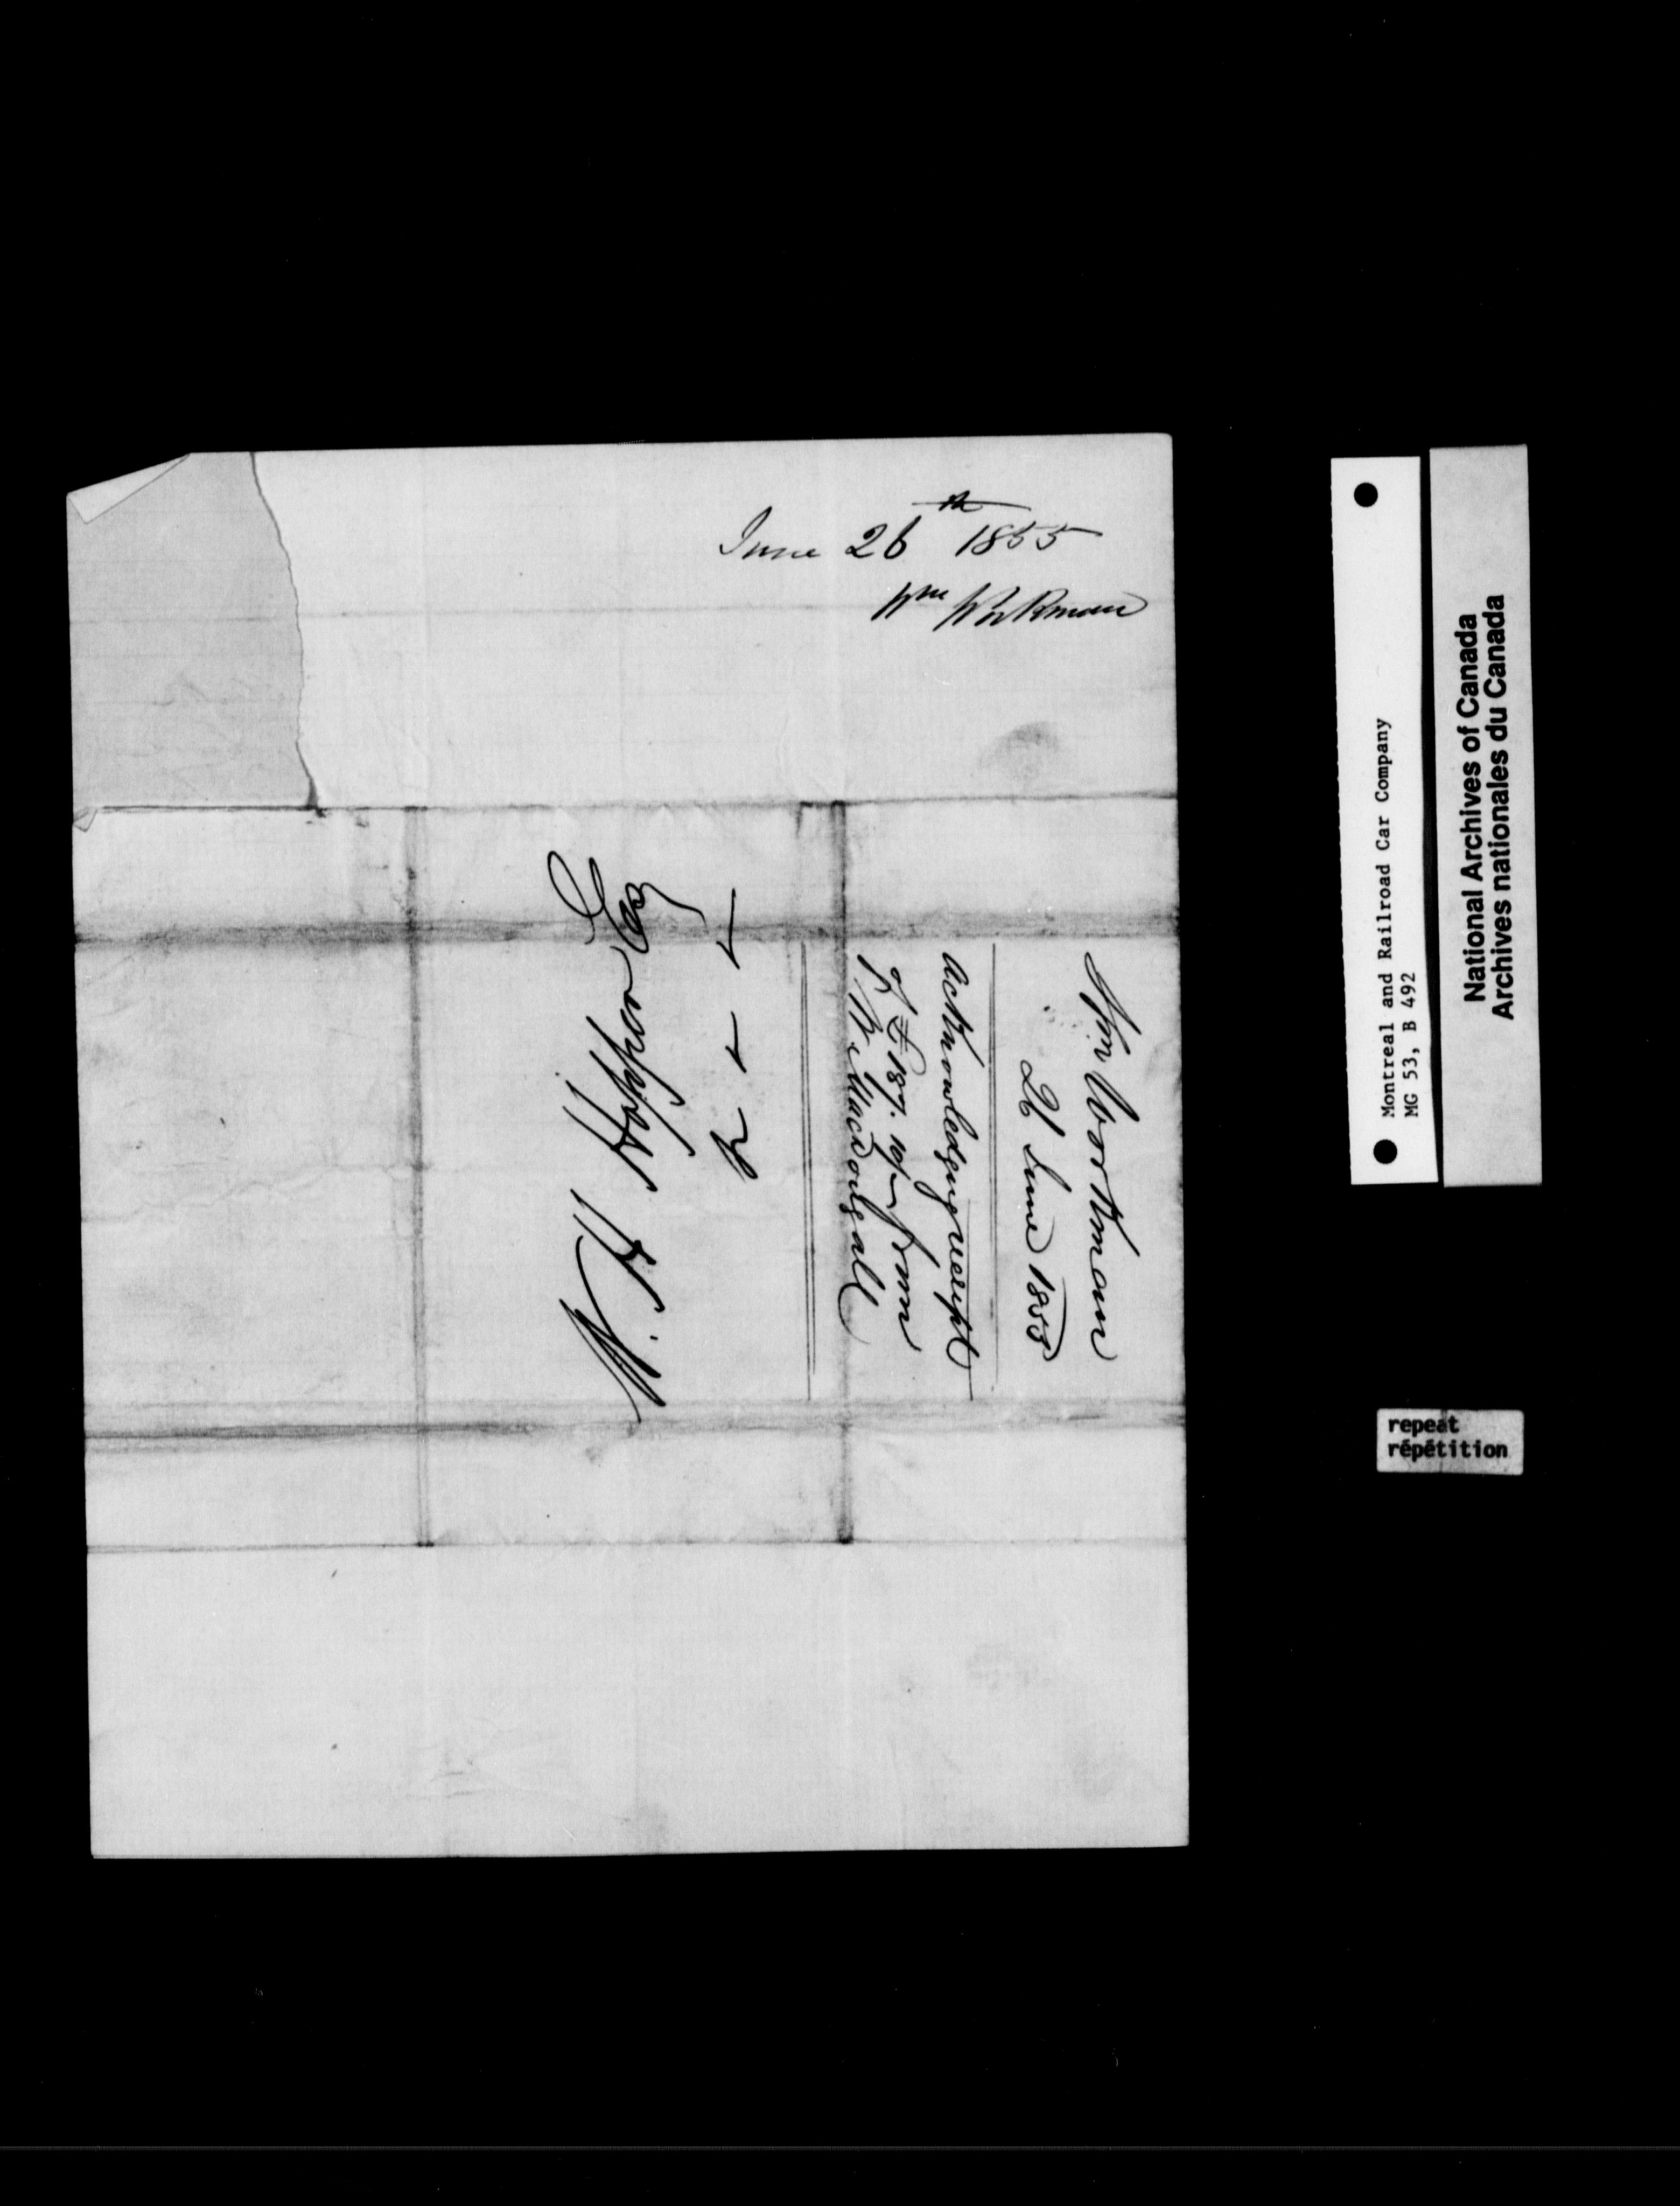 June 26th 1855
Wm Workman
Wm Workman
26 June 1855
Acknowledging receipt
of £187. 10/- from
R. MacDougall
W. H. Hopper Esq
Montreal and Railroad Car Company
MG 53, B 492
National Archives of Canada
Archives nationales du Canada
repeat
répétition